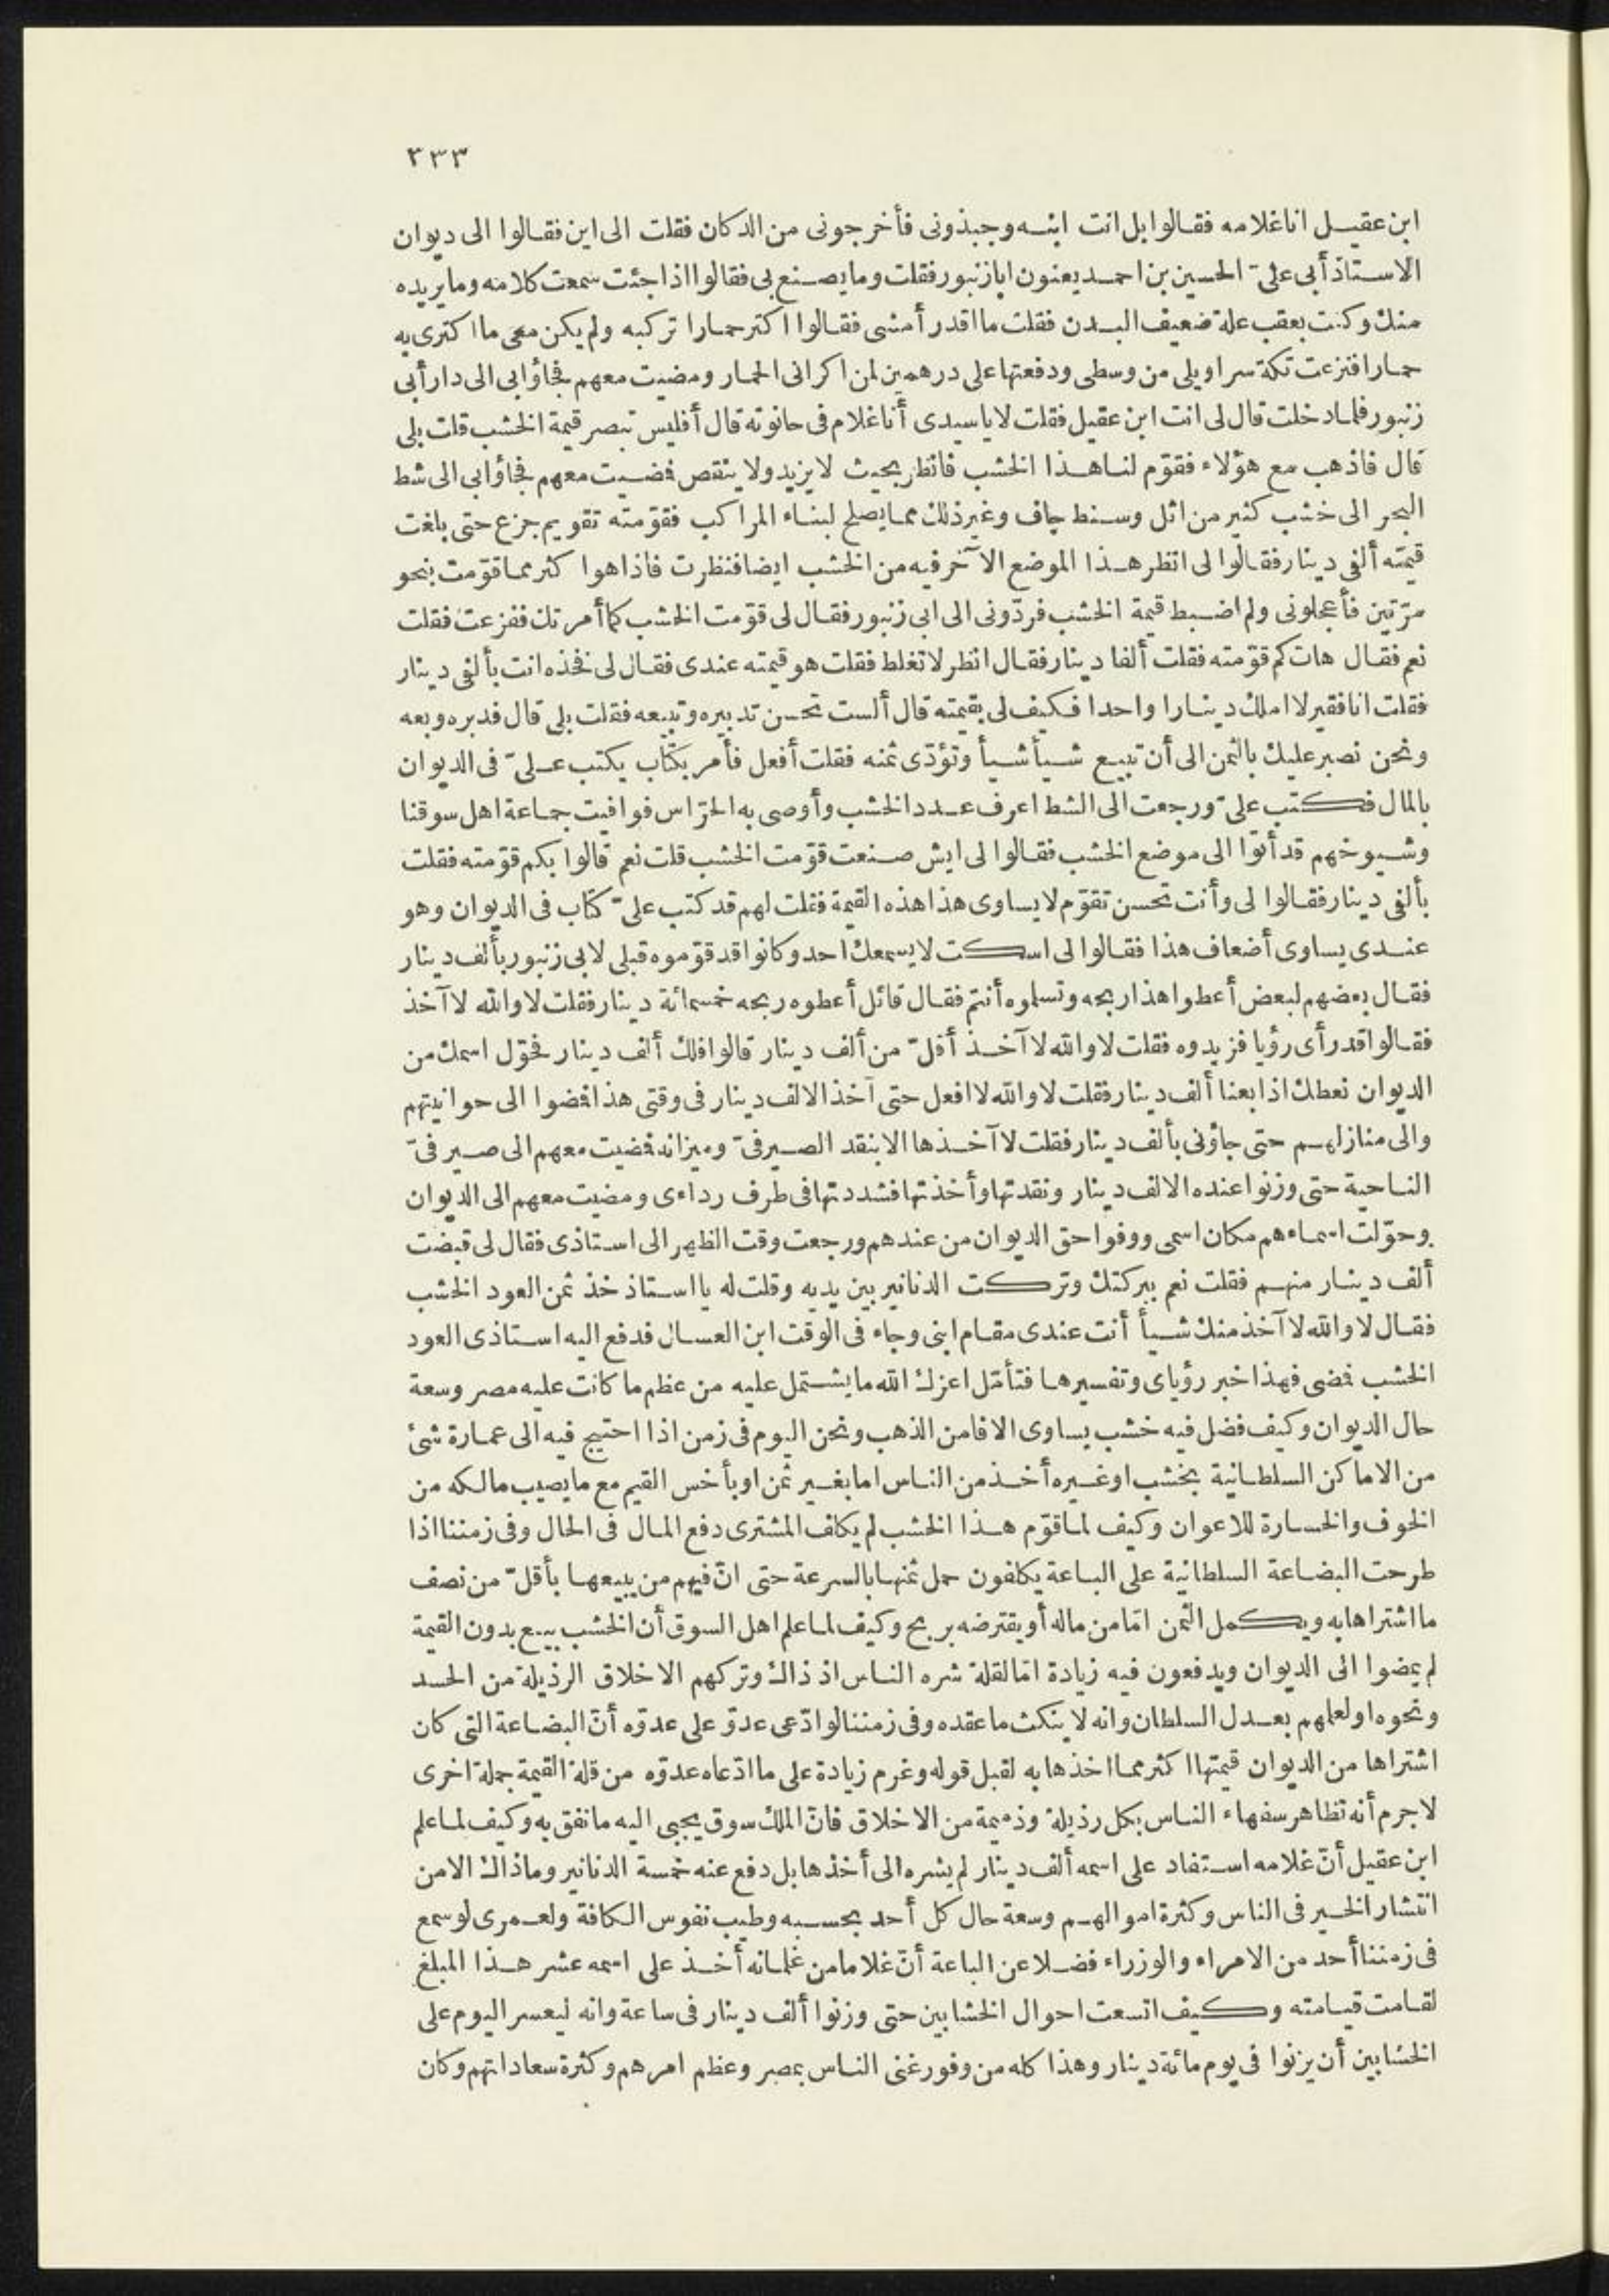 ٣٣٣
ابن عقيل انا غلامه فقالوا بل انت ابنه وجبذونى فأخرجونى من الدكان فقلت الى اين فقالوا الى ديوان
الاستاذ أبى علىّ الحسين بن احمد يعنون ابا زنبور فقلت وما يصنع بى فقالوا اذا جئت سمعت كلامه وما يريده
منك وكنت بعقب علة ضعيف البدن فقلت ما اقدر أمشى فقالوا اكتر حمارا تركبه ولم يكن معى ما اكترى به
حمارا فنزعت تكة سراويلى من وسطى ودفعتها على درهمين لمن اكرانى الحمار ومضيت معهم فجاؤا بى الى دار أبى
زنبور فلما دخلت قال لى انت ابن عقيل فقلت لا يا سيدى أنا غلام فى حانوته قال أفليس تبصر قيمة الخشب قلت بلى
قال فاذهب مع هؤلاء فقوّم لنا هذا الخشب فانظر بحيث لا يزيد ولا ينقص فمضيت معهم فجاؤا بى الى شط
البحر الى خشب كثير من اثل وسنط جاف وغير ذلك مما يصلح لبناء المراكب فقوّمته تقويم جزع حتى بلغت
قيمته ألفى دينار فقالوا لى انظر هذا الموضع الآخر فيه من الخشب ايضا فنظرت فاذا هو اكثر مما قوّمت بنحو
مرّتين فأعجلونى ولم اضبط قيمة الخشب فردّونى الى ابى زنبور فقال لى قوّمت الخشب كما أمرتك ففزعت فقلت
نعم فقال هات كم قوّمته فقلت ألفا دينار فقال انظر لا تغلط فقلت هو قيمته عندى فقال لى فخذه انت بألفى دينار
فقلت انا فقير لا املك دينارا واحدا فكيف لى بقيمته قال ألست تحسن تدبيره وتبيعه فقلت بلى قال فدبره وبعه
ونحن نصبر عليك بالثمن الى أن تبيع شيأ شيأ وتؤدّى ثمنه فقلت أفعل فأمر بكتاب يكتب علىّ فى الديوان
بالمال فكتب علىّ ورجعت الى الشط اعرف عدد الخشب وأوصى به الحرّاس فوافيت جماعة اهل سوقنا
وشيوخهم قد أتوا الى موضع الخشب فقالوا لى ايش صنعت قوّمت الخشب قلت نعم قالوا بكم قوّمته فقلت
بألفى دينار فقالوا لى وأنت تحسن تقوّم لا يساوى هذا هذه القيمة فقلت لهم قد كتب علىّ كتاب فى الديوان وهو
عندى يساوى أضعاف هذا فقالوا لى اسكت لا يسمعك احد وكانوا قد قوّموه قبلى لابى زنبور بألف دينار
فقال بعضهم لبعض أعطوا هذا ربحه وتسلموه أنتم فقال قائل أعطوه ربحه خمسمائة دينار فقلت لا والله لا آخذ
فقالوا قد رأى رؤيا فزيدوه فقلت لا والله لا آخذ أقلّ من ألف دينار قالوا فلك ألف دينار فحوّل اسمك من
الديوان نعطك اذا بعنا ألف دينار فقلت لا والله لا افعل حتى آخذ الالف دينار فى وقتى هذا فمضوا الى حوانيتهم
والى منازلهم حتى جاؤنى بألف دينار فقلت لا آخذها الا بنقد الصيرفىّ وميزانه فمضيت معهم الى صيرفىّ
الناحية حتى وزنوا عنده الالف دينار ونقدتها وأخذتها فشددتها فى طرف رداءى ومضيت معهم الى الديوان
وحوّلت اسماءهم مكان اسمى ووفوا حق الديوان من عندهم ورجعت وقت الظهر الى استاذى فقال لى قبضت
ألف دينار منهم فقلت نعم ببركتك وتركت الدنانير بين يديه وقلت له يا استاذ خذ ثمن العود الخشب
فقال لا والله لا آخذ منك شيأ أنت عندى مقام ابنى وجاء فى الوقت ابن العسال فدفع اليه استاذى العود
الخشب فمضى فهذا خبر رؤياى وتفسيرها فتأمّل اعزك الله ما يشتمل عليه من عظم ما كانت عليه مصر وسعة
حال الديوان وكيف فضل فيه خشب يساوى الافا من الذهب ونحن اليوم فى زمن اذا احتيج فيه الى عمارة شئ
من الاماكن السلطانية بخشب او غيره أخذ من الناس اما بغير ثمن او بأخس القيم مع ما يصيب مالكه من
الخوف والخسارة للاعوان وكيف لما قوّم هذا الخشب لم يكلف المشترى دفع المال فى الحال وفى زمننا اذا
طرحت البضاعة السلطانية على الباعة يكلفون حمل ثمنها بالسرعة حتى انّ فيهم من يبيعها بأقلّ من نصف
ما اشتراها به ويكمل الثمن امّا من ماله أو يقترضه بربح وكيف لما علم اهل السوق أن الخشب بيع بدون القيمة
لم يمضوا الى الديوان ويدفعون فيه زيادة امّا لقلة شره الناس اذ ذاك وتركهم الاخلاق الرذيلة من الحسد
ونحوه او لعلمهم بعدل السلطان وانه لا ينكث ما عقده وفى زمننا لو ادّعى عدوّ على عدوّه أنّ البضاعة التى كان
اشتراها من الديوان قيمتها اكثر مما اخذها به لقبل قوله وغرم زيادة على ما ادّعاه عدوّه من قلة القيمة جملة اخرى
لا جرم أنه تظاهر سفهاء الناس بكل رذيلة وذميمة من الاخلاق فانّ الملك سوق يجبى اليه ما نفق به وكيف لما علم
ابن عقيل أنّ غلامه استفاد على اسمه ألف دينار لم يشره الى أخذها بل دفع عنه خمسة الدنانير وما ذاك الا من
انتشار الخير فى الناس وكثرة اموالهم وسعة حال كل أحد بحسبه وطيب نفوس الكافة ولعمرى لو سمع
فى زمننا أحد من الامراء والوزراء فضلا عن الباعة أنّ غلاما من غلمانه أخذ على اسمه عشر هذا المبلغ
لقامت قيامته وكيف اتسعت احوال الخشابين حتى وزنوا ألف دينار فى ساعة وانه ليعسر اليوم على
الخشابين أن يزنوا فى يوم مائة دينار وهذا كله من وفور غنى الناس بمصر وعظم امرهم وكثرة سعاداتهم وكان